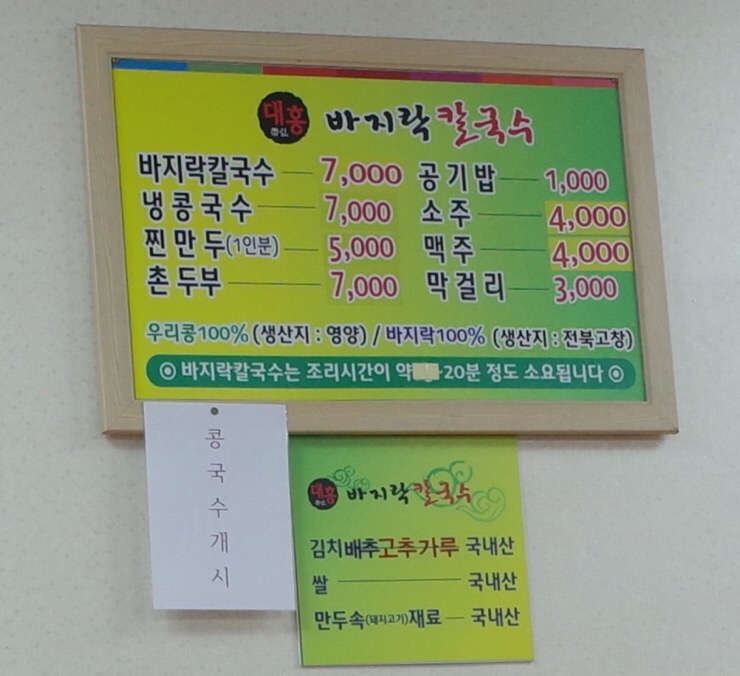 대홍 바지락칼국수
바지락칼국수 7,000 공기밥 1,000
냉콩국수 7,000 소주 4,000
찐만두(1인분) 5,000 맥주 4,000
촌두부 7,000 막걸리 3,000
우리콩100% (생산지 : 영양) / 바지락100% (생산지 : 전북고창)
◎ 바지락칼국수는 조리시간이 약 -20분 정도 소요됩니다 ◎
콩
국
수
개
시
대홍 바지락칼국수
김치배추고추가루 국내산
쌀 국내산
만두속(돼지고기)재료 국내산